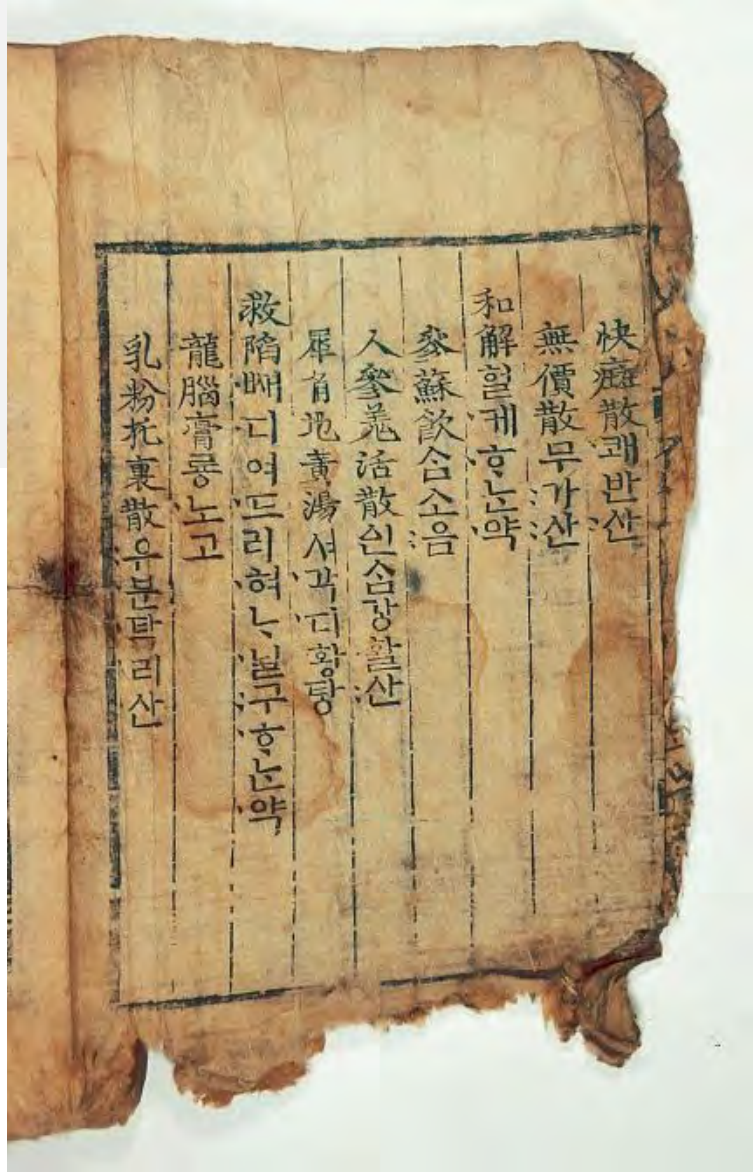 快癍散쾌반산
無價散무가산
和解헐케ᄒᆞᄂᆞᆫ약
參蘇飮ᄉᆞᆷ소음
人參羌活散인ᄉᆞᆷ강활산
犀角地黃湯셔각디황탕
救陷ᄢᅢ디여드리혀ᄂᆞᆫᄃᆡ구ᄒᆞᄂᆞᆫ약
龍腦膏룡노고
乳粉托裏散유분탁리산